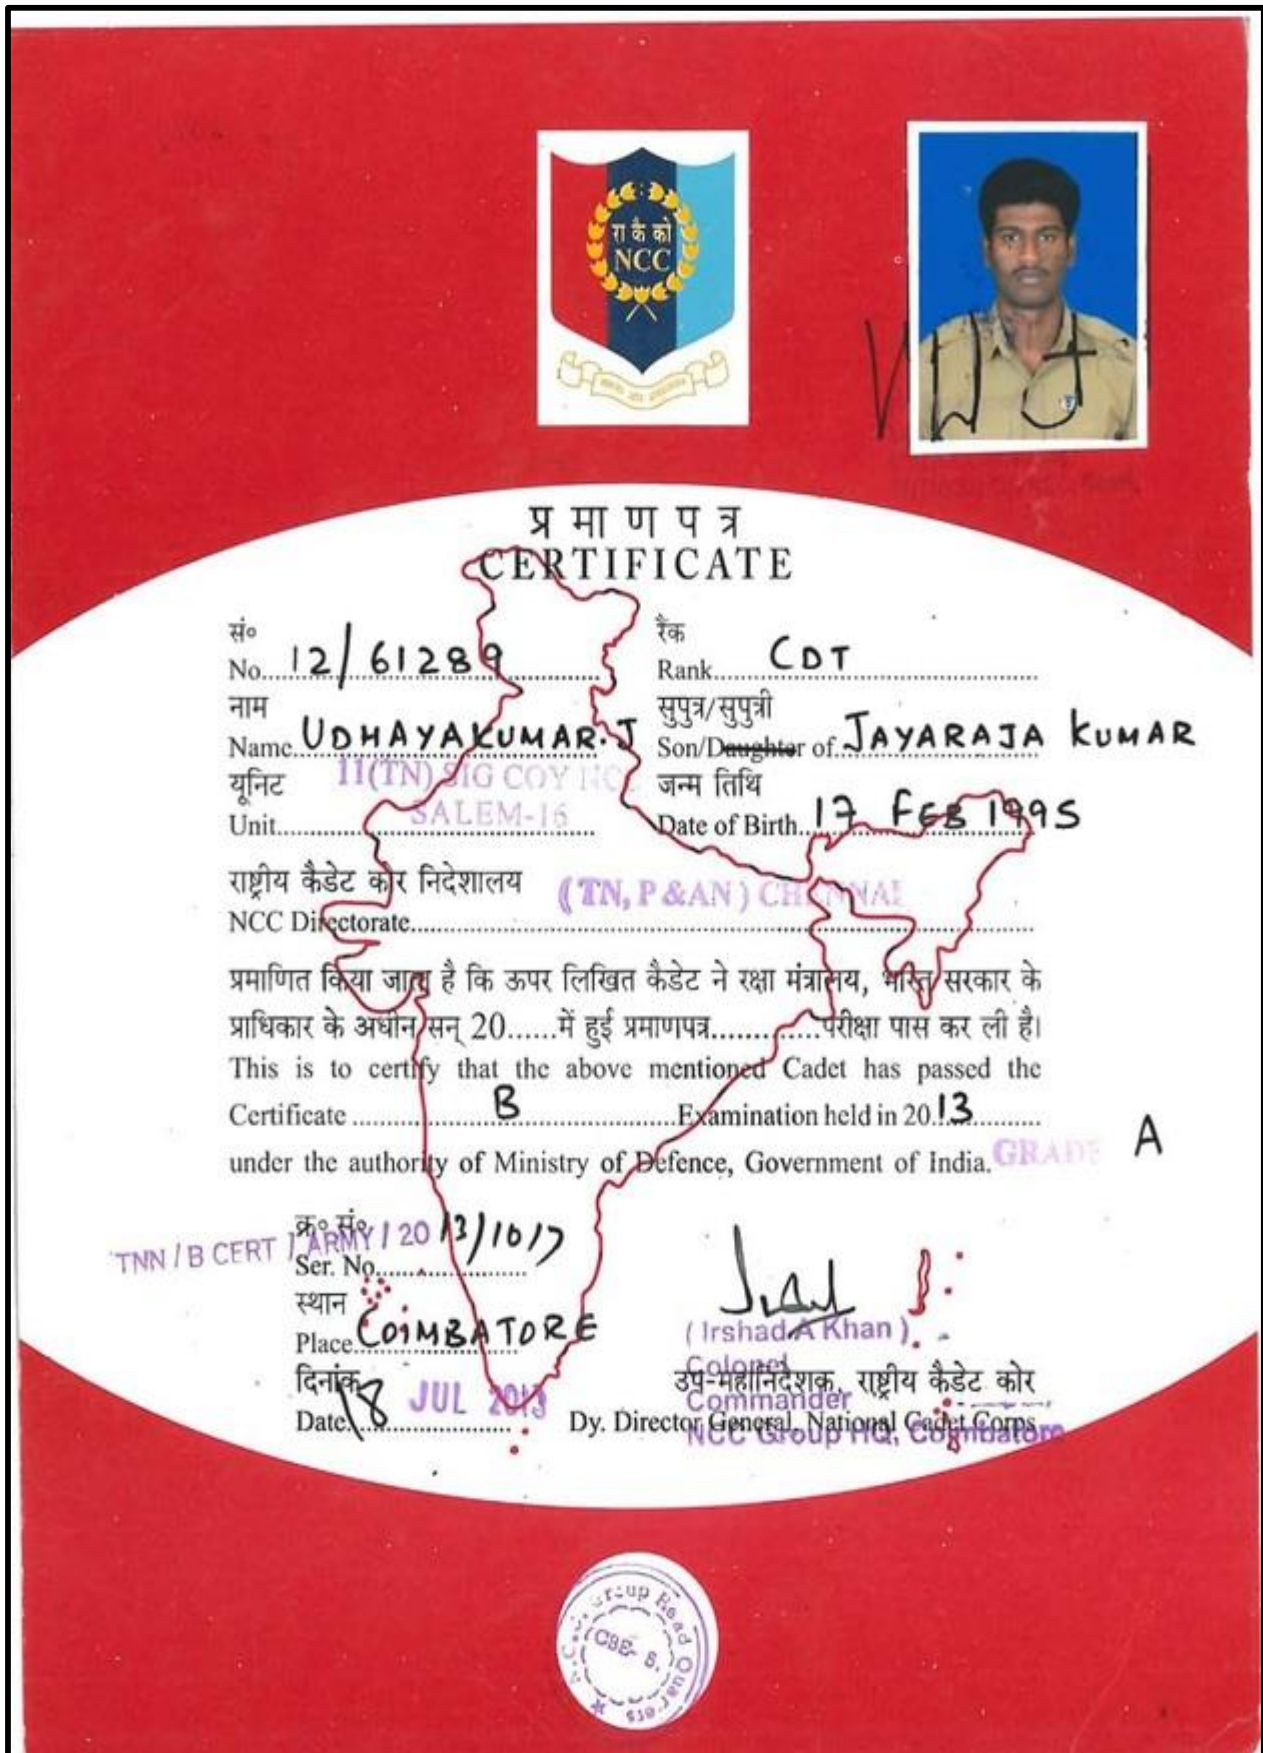 रा कै को
NCC
प्रमाणपत्र
CERTIFICATE
सं०
No. 12/61289
रैंक
Rank CDT
नाम
Name UDHAYAKUMAR.J
सुपुत्र/सुपुत्री
Son/Daughter of JAYARAJA KUMAR
यूनिट
Unit 11(TN) SIG COY NCC
SALEM-16
जन्म तिथि
Date of Birth 17 FEB 1995
राष्ट्रीय कैडेट कोर निदेशालय
NCC Directorate (TN, P &AN) CHENNAI
प्रमाणित किया जाता है कि ऊपर लिखित कैडेट ने रक्षा मंत्रालय, भारत सरकार के
प्राधिकार के अधीन सन् 20......में हुई प्रमाणपत्र.............परीक्षा पास कर ली है।
This is to certify that the above mentioned Cadet has passed the
Certificate B Examination held in 20 13
under the authority of Ministry of Defence, Government of India. GRADE A
क्र० सं०
TNN / B CERT / ARMY / 20 13/1017
Ser. No.
स्थान
Place COIMBATORE
दिनांक
Date 18 JUL 2013
(Irshad A Khan)
Colonel
उप-महानिदेशक, राष्ट्रीय कैडेट कोर
Commander
Dy. Director General, National Cadet Corps
NCC Group HQ, Coimbatore
N.C.C. Group Head Quarters
CBE- 8.